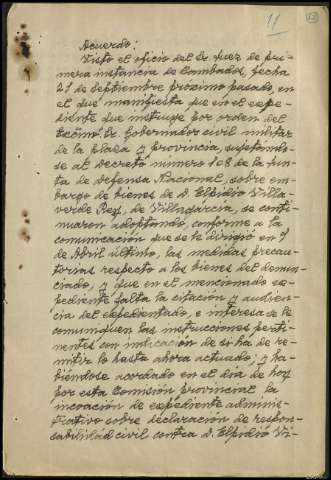 11
Acuerdo:
Visto el oficio del Sr. Juez de pri-
mera instancia de Cambados, fecha
21 de Septiembre próximo pasado, en
el que manifiesta que en el expe-
diente que instruye por orden del
Excmo. Sr. Gobernador civil militar
de la Plaza y provincia, sujetándo-
se al Decreto número 108 de la Jun-
ta de Defensa Nacional, sobre em-
bargo de bienes de D. Elpidio Villa-
verde Rey, de Villagarcía, se conti-
nuaron adoptando, conforme a la
comunicación que se le dirigió en 9
de Abril último, las medidas precau-
torias respecto a los bienes del denun-
ciado, y que en el mencionado ex-
pediente falta la citación y audien-
cia del expedientado, e interesa se le
comuniquen las instrucciones perti-
nentes con indicación de si ha de re-
mitir lo hasta ahora actuado; y ha-
biéndose acordado en el día de hoy
por esta Comisión provincial la
incoación de expediente adminis-
trativo sobre declaración de respon-
sabilidad civil contra D. Elpidio Vi-